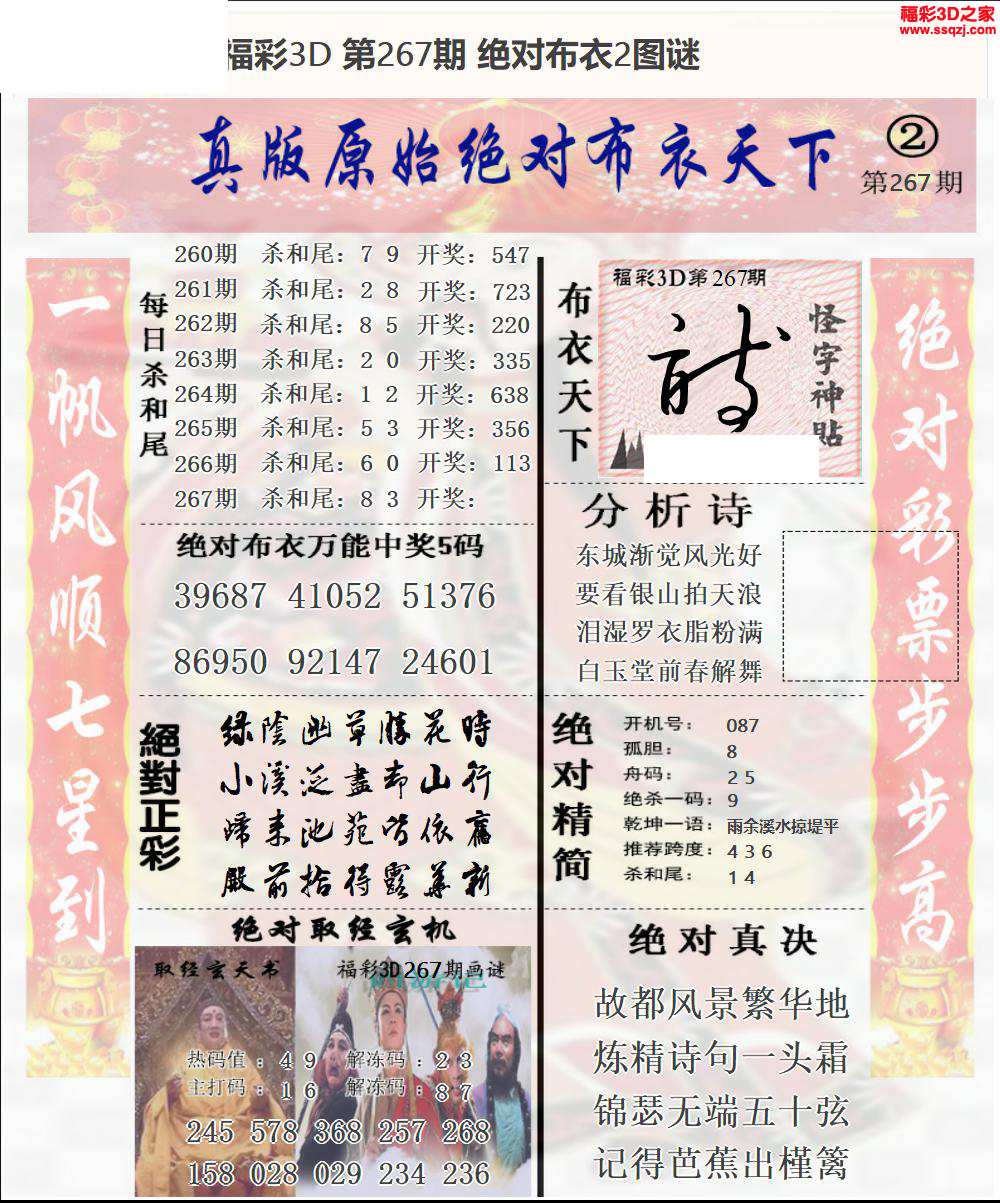 福彩3D之家
www.ssqzj.com
福彩3D 第267期 绝对布衣2图谜
真版原始绝对布衣天下
②
第267期
一帆风顺七星到
每日杀和尾
260期 杀和尾：7 9 开奖：547
261期 杀和尾：2 8 开奖：723
262期 杀和尾：8 5 开奖：220
263期 杀和尾：2 0 开奖：335
264期 杀和尾：1 2 开奖：638
265期 杀和尾：5 3 开奖：356
266期 杀和尾：6 0 开奖：113
267期 杀和尾：8 3 开奖：
绝对布衣万能中奖5码
39687 41052 51376
86950 92147 24601
絕對正彩
绿陰幽草勝花時
小溪泛盡却山行
歸来池苑皆依舊
殿前拾得露華新
绝对取经玄机
取经玄天书
福彩3D267期画谜
热码值：4 9 解冻码：2 3
主打码：1 6 解冻码：8 7
245 578 368 257 268
158 028 029 234 236
布衣天下
福彩3D第267期
怪字神贴
分析诗
东城渐觉风光好
要看银山拍天浪
泪湿罗衣脂粉满
白玉堂前春解舞
绝对精简
开机号：087
孤胆：8
舟码：2 5
绝杀一码：9
乾坤一语：雨余溪水掠堤平
推荐跨度：4 3 6
杀和尾：1 4
绝对真决
故都风景繁华地
炼精诗句一头霜
锦瑟无端五十弦
记得芭蕉出槿篱
绝对彩票步步高